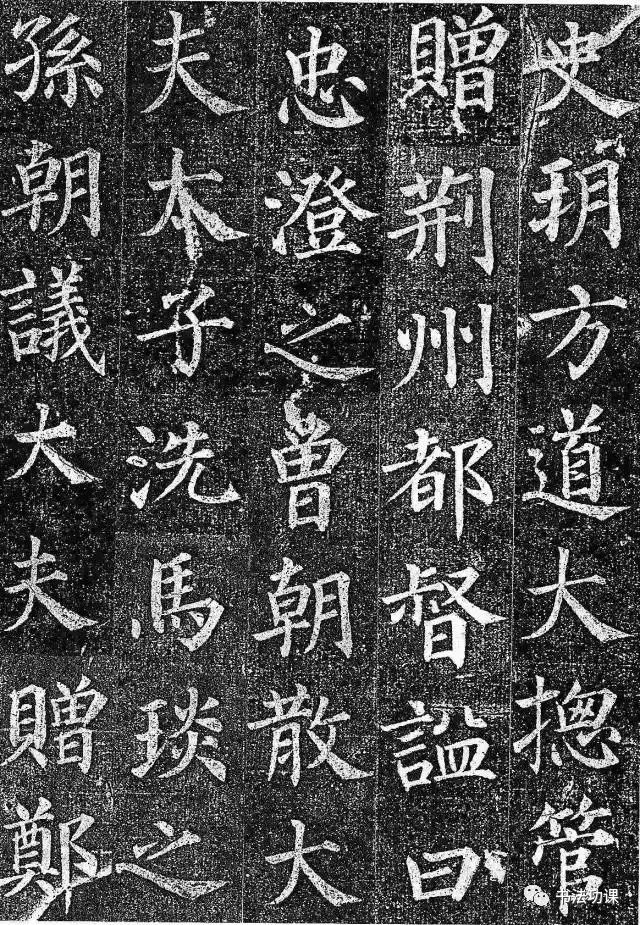 史玥方道大摠管
贈荆州都督謚曰
忠澄之曾朝散大
夫太子洗馬琰之
孫朝議大夫贈鄭
书法功课